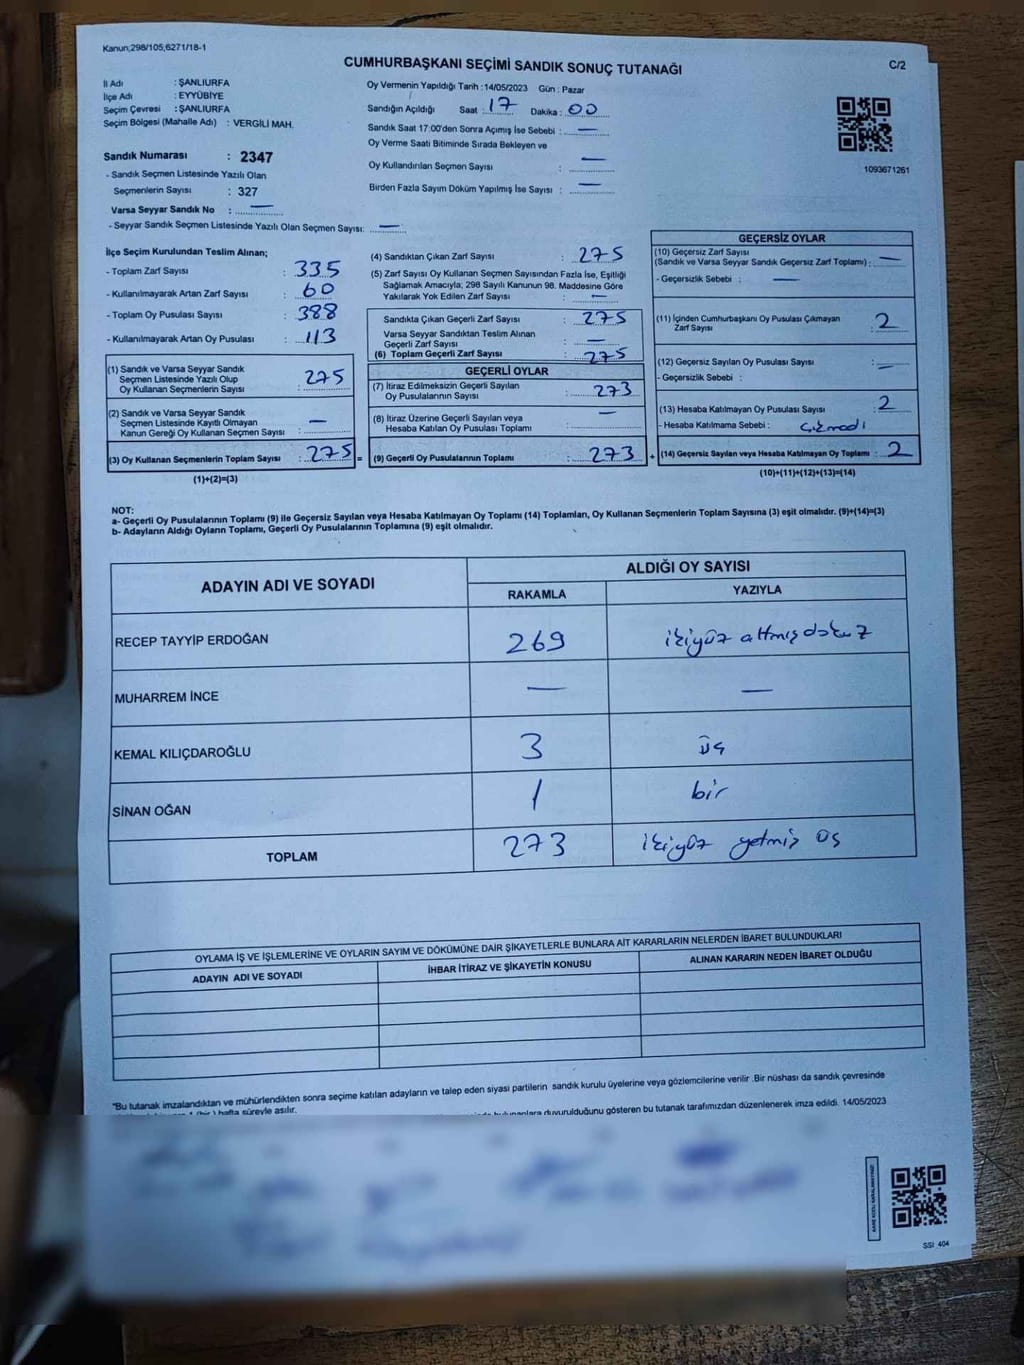 Kanun;298/105;6271/18-1
CUMHURBAŞKANI SEÇİMİ SANDIK SONUÇ TUTANAĞI
C/2
İl Adı : ŞANLIURFA
İlçe Adı : EYYÜBİYE
Seçim Çevresi : ŞANLIURFA
Seçim Bölgesi (Mahalle Adı) : VERGİLİ MAH.
Sandık Numarası : 2347
- Sandık Seçmen Listesinde Yazılı Olan
Seçmenlerin Sayısı : 327
Varsa Seyyar Sandık No : —
- Seyyar Sandık Seçmen Listesinde Yazılı Olan Seçmen Sayısı: —
Oy Vermenin Yapıldığı Tarih : 14/05/2023 Gün : Pazar
Sandığın Açıldığı Saat : 17 Dakika : 00
Sandık Saat 17:00'den Sonra Açımış İse Sebebi : —
Oy Verme Saati Bitiminde Sırada Bekleyen ve
Oy Kullandırılan Seçmen Sayısı : —
Birden Fazla Sayım Döküm Yapılmış İse Sayısı : —
1093671261
İlçe Seçim Kurulundan Teslim Alınan;
- Toplam Zarf Sayısı : 335
- Kullanılmayarak Artan Zarf Sayısı : 60
- Toplam Oy Pusulası Sayısı : 388
- Kullanılmayarak Artan Oy Pusulası : 113
(1) Sandık ve Varsa Seyyar Sandık
Seçmen Listesinde Yazılı Olup
Oy Kullanan Seçmenlerin Sayısı : 275
(2) Sandık ve Varsa Seyyar Sandık
Seçmen Listesinde Kayıtlı Olmayan
Kanun Gereği Oy Kullanan Seçmen Sayısı : —
(3) Oy Kullanan Seçmenlerin Toplam Sayısı : 275 =
(1)+(2)=(3)
(4) Sandıktan Çıkan Zarf Sayısı : 275
(5) Zarf Sayısı Oy Kullanan Seçmen Sayısından Fazla İse, Eşitliği
Sağlamak Amacıyla; 298 Sayılı Kanunun 98. Maddesine Göre
Yakılarak Yok Edilen Zarf Sayısı : —
Sandıkta Çıkan Geçerli Zarf Sayısı : 275
Varsa Seyyar Sandıktan Teslim Alınan
Geçerli Zarf Sayısı : —
(6) Toplam Geçerli Zarf Sayısı : 275
GEÇERLİ OYLAR
(7) İtiraz Edilmeksizin Geçerli Sayılan
Oy Pusulalarının Sayısı : 273
(8) İtiraz Üzerine Geçerli Sayılan veya
Hesaba Katılan Oy Pusulası Toplamı : —
(9) Geçerli Oy Pusulalarının Toplamı : 273 +
GEÇERSİZ OYLAR
(10) Geçersiz Zarf Sayısı
(Sandık ve Varsa Seyyar Sandık Geçersiz Zarf Toplamı) : —
- Geçersizlik Sebebi : —
(11) İçinden Cumhurbaşkanı Oy Pusulası Çıkmayan
Zarf Sayısı : 2
(12) Geçersiz Sayılan Oy Pusulası Sayısı : —
- Geçersizlik Sebebi :
(13) Hesaba Katılmayan Oy Pusulası Sayısı : 2
- Hesaba Katılmama Sebebi : Çıkmadı
(14) Geçersiz Sayılan veya Hesaba Katılmayan Oy Toplamı : 2
(10)+(11)+(12)+(13)=(14)
NOT:
a- Geçerli Oy Pusulalarının Toplamı (9) ile Geçersiz Sayılan veya Hesaba Katılmayan Oy Toplamı (14) Toplamları, Oy Kullanan Seçmenlerin Toplam Sayısına (3) eşit olmalıdır. (9)+(14)=(3)
b- Adayların Aldığı Oyların Toplamı, Geçerli Oy Pusulalarının Toplamına (9) eşit olmalıdır.
ADAYIN ADI VE SOYADI
ALDIĞI OY SAYISI
RAKAMLA YAZIYLA
RECEP TAYYİP ERDOĞAN 269 ikiyüz altmış dokuz
MUHARREM İNCE — —
KEMAL KILIÇDAROĞLU 3 üç
SİNAN OĞAN 1 bir
TOPLAM 273 ikiyüz yetmiş üç
OYLAMA İŞ VE İŞLEMLERİNE VE OYLARIN SAYIM VE DÖKÜMÜNE DAİR ŞİKAYETLERLE BUNLARA AİT KARARLARIN NELERDEN İBARET BULUNDUKLARI
ADAYIN ADI VE SOYADI İHBAR İTİRAZ VE ŞİKAYETİN KONUSU ALINAN KARARIN NEDEN İBARET OLDUĞU
"Bu tutanak imzalandıktan ve mühürlendikten sonra seçime katılan adayların ve talep eden siyasi partilerin sandık kurulu üyelerine veya gözlemcilerine verilir .Bir nüshası da sandık çevresinde
1 (bir) hafta süreyle asılır.
duyurulduğunu gösteren bu tutanak tarafımızdan düzenlenerek imza edildi. 14/05/2023
SSI 404